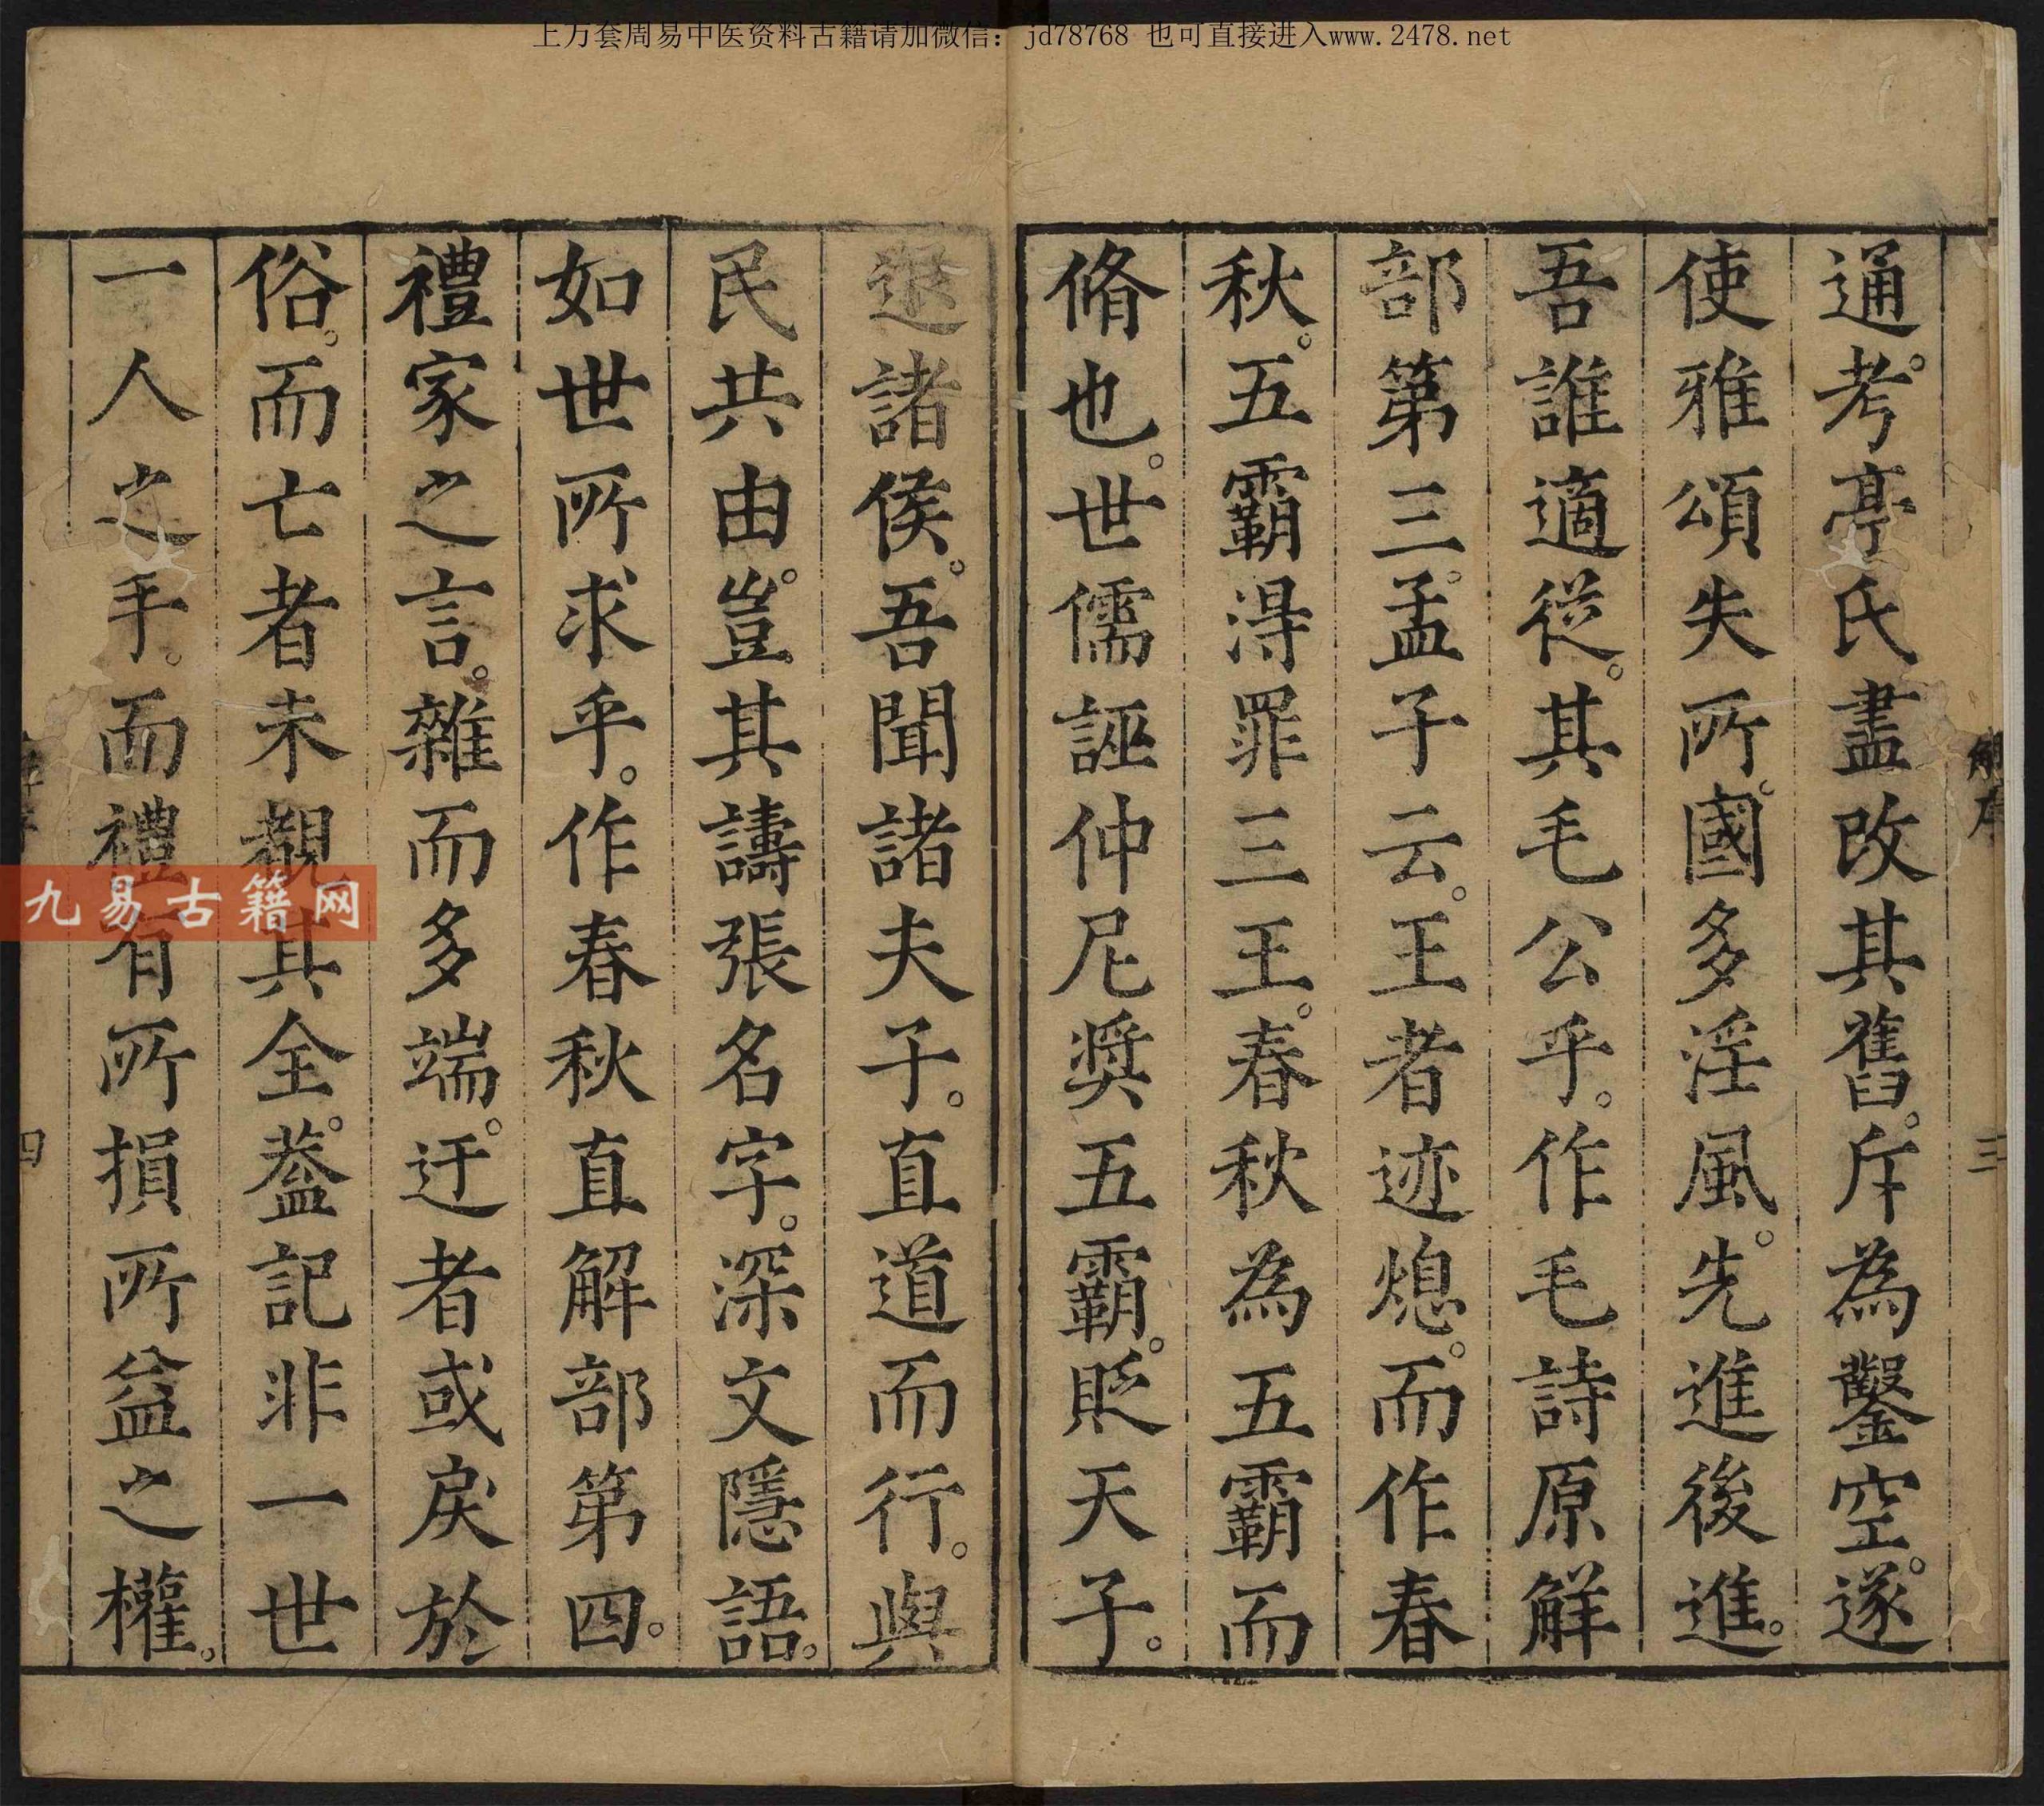 上万套周易中医资料古籍请加微信：jd78768 也可直接进入www.2478.net
通。考亭氏盡改其舊。斥為鑿空。遂
使雅頌失所。國多淫風。先進後進。
吾誰適從。其毛公乎。作毛詩原解
部第三。孟子云。王者迹熄。而作春
秋。五霸得罪三王。春秋為五霸而
脩也。世儒誣仲尼奨五霸。貶天子。
退諸侯。吾聞諸夫子。直道而行。與
民共由。豈其譸張名字。深文隱語。
如世所求乎。作春秋直解部第四。
禮家之言。雜而多端。迂者或戾於
俗。而亡者未覩其全。葢記非一世
一人之手。而禮有所損所益之權。
三
四
九易古籍网